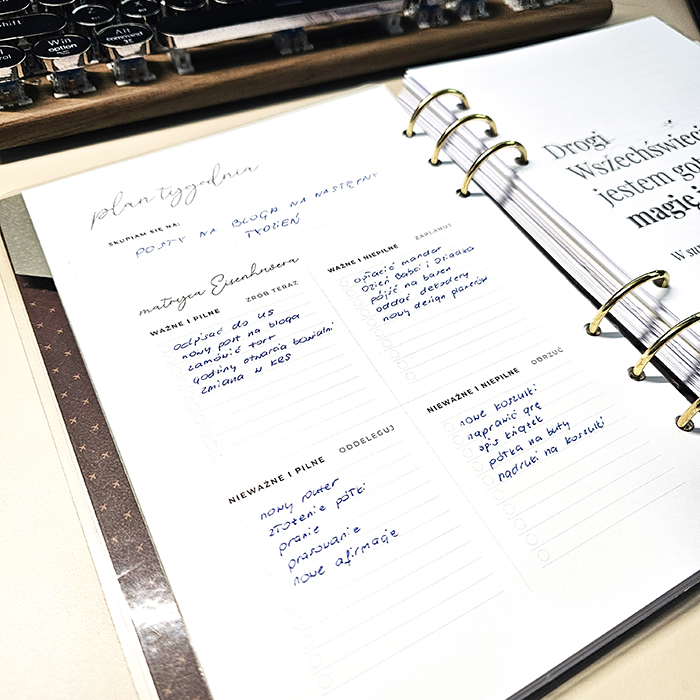 Shift
Win
option
Alt
command
plan tygodnia
SKUPIAM SIĘ NA:
POSTY NA BLOGA NA NASTĘPNY
TYDZIEŃ
matryca Eisenhowera
WAŻNE I PILNE ZRÓB TERAZ
odpisać do US
nowy post na bloga
zamówić tort
godziny otwarcia bawialni
zmiana w KRS
WAŻNE I NIEPILNE ZAPLANUJ
opłacić mandat
Dzień Babci i Dziadka
pójść na basen
oddać dekodery
nowy design planerów
NIEWAŻNE I PILNE ODDELEGUJ
nowy router
złożenie półki
pranie
prasowanie
nowe afirmacje
NIEWAŻNE I NIEPILNE ODRZUĆ
nowe koszulki
naprawić grę
spis książek
półka na buty
nadruki na koszulki
Drogi
jestem
W